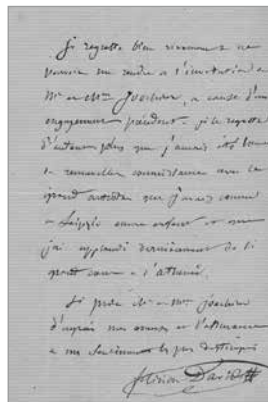 Je regrette bien vivement de ne
pouvoir me rendre à l'invitation de
Mr et Mme Joachim, à cause d'un
engagement précédent. je le regrette
d'autant plus que j'aurais été
de renouveler connaissance avec le
grand artiste que j'avais connu
à Leipzig encore enfant et que
j'ai applaudi dernièrement de si
grand cœur à l'athénée.
Je prie Mr et Mme Joachim
d'agréer mes excuses et l'assurance
de mes sentiments les plus distingués
Félicien David